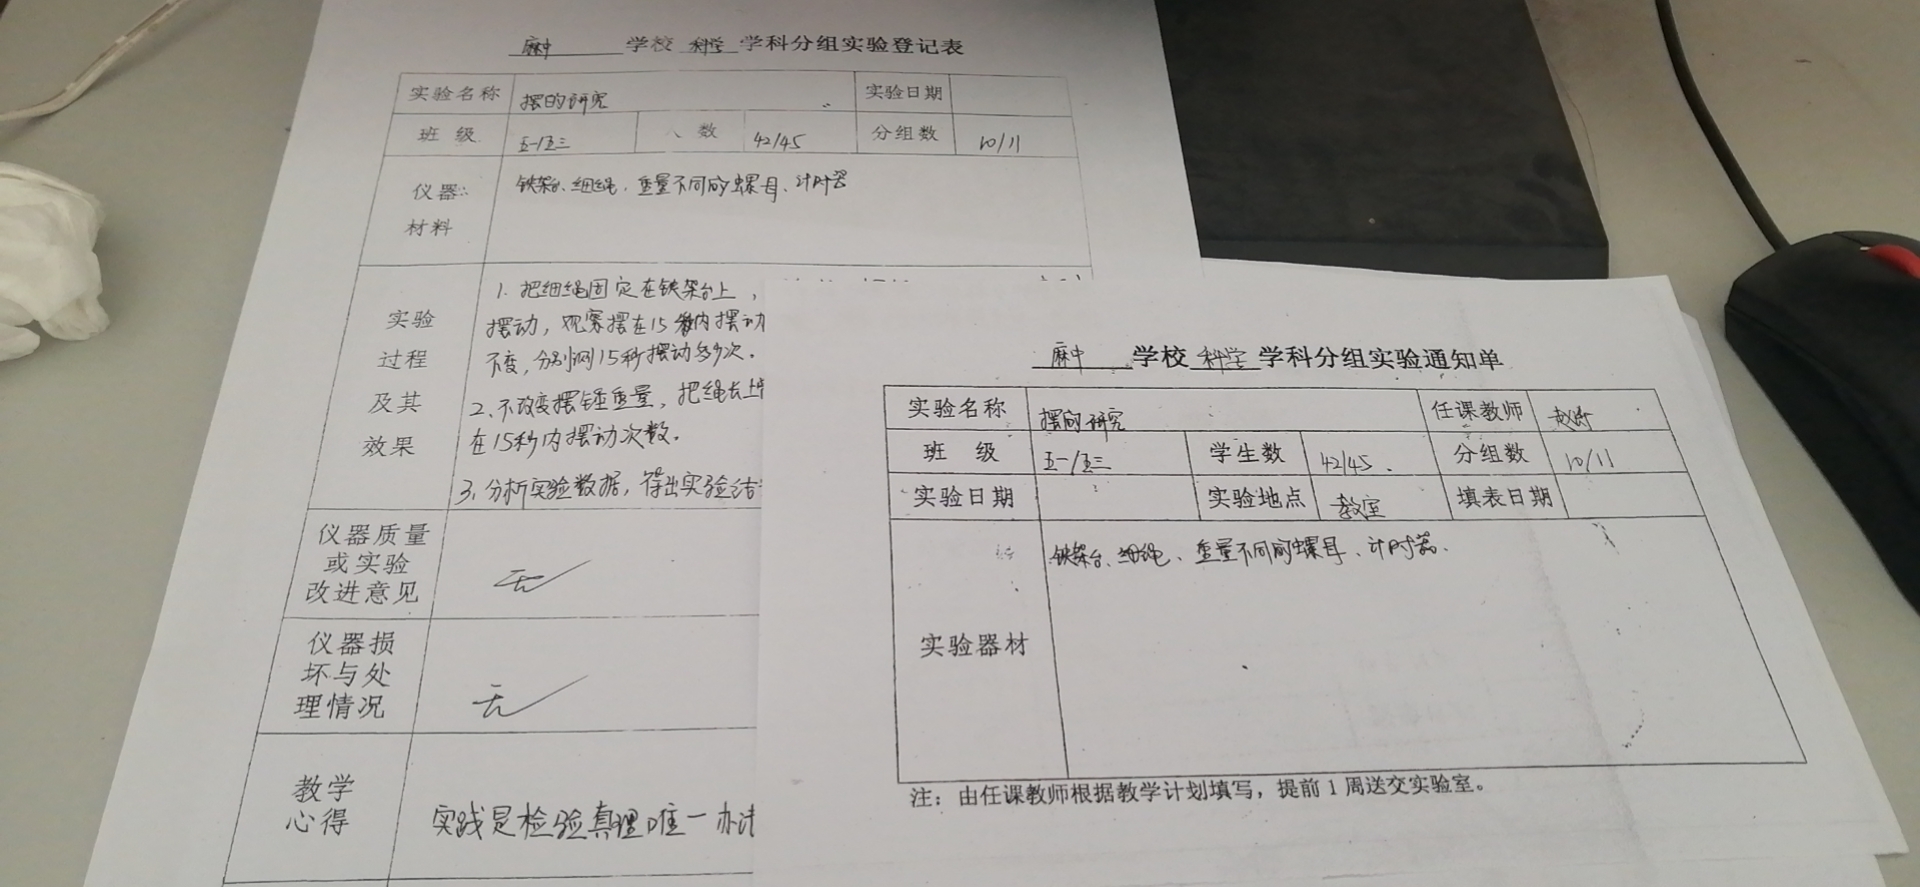 麻中 学校 科学 学科分组实验登记表
实验名称 摆的研究 实验日期
班 级 五一/五三 人 数 42/45 分组数 10/11
仪器 材料 铁架台、细绳、重量不同的螺母、计时器
实验过程及其效果
1. 把细绳固定在铁架台上，
摆动，观察摆在15秒内摆动
不变，分别测15秒摆动多少次.
2. 不改变摆锤重量，把绳长
在15秒内摆动次数.
3. 分析实验数据，得出实验结
仪器质量或实验改进意见 无
仪器损坏与处理情况 无
教学心得 实践是检验真理唯一办法
麻中 学校 科学 学科分组实验通知单
实验名称 摆的研究 任课教师
班 级 五一/五三 学生数 42/45 分组数 10/11
实验日期 实验地点 教室 填表日期
实验器材 铁架台、细绳、重量不同的螺母、计时器.
注：由任课教师根据教学计划填写，提前1周送交实验室。